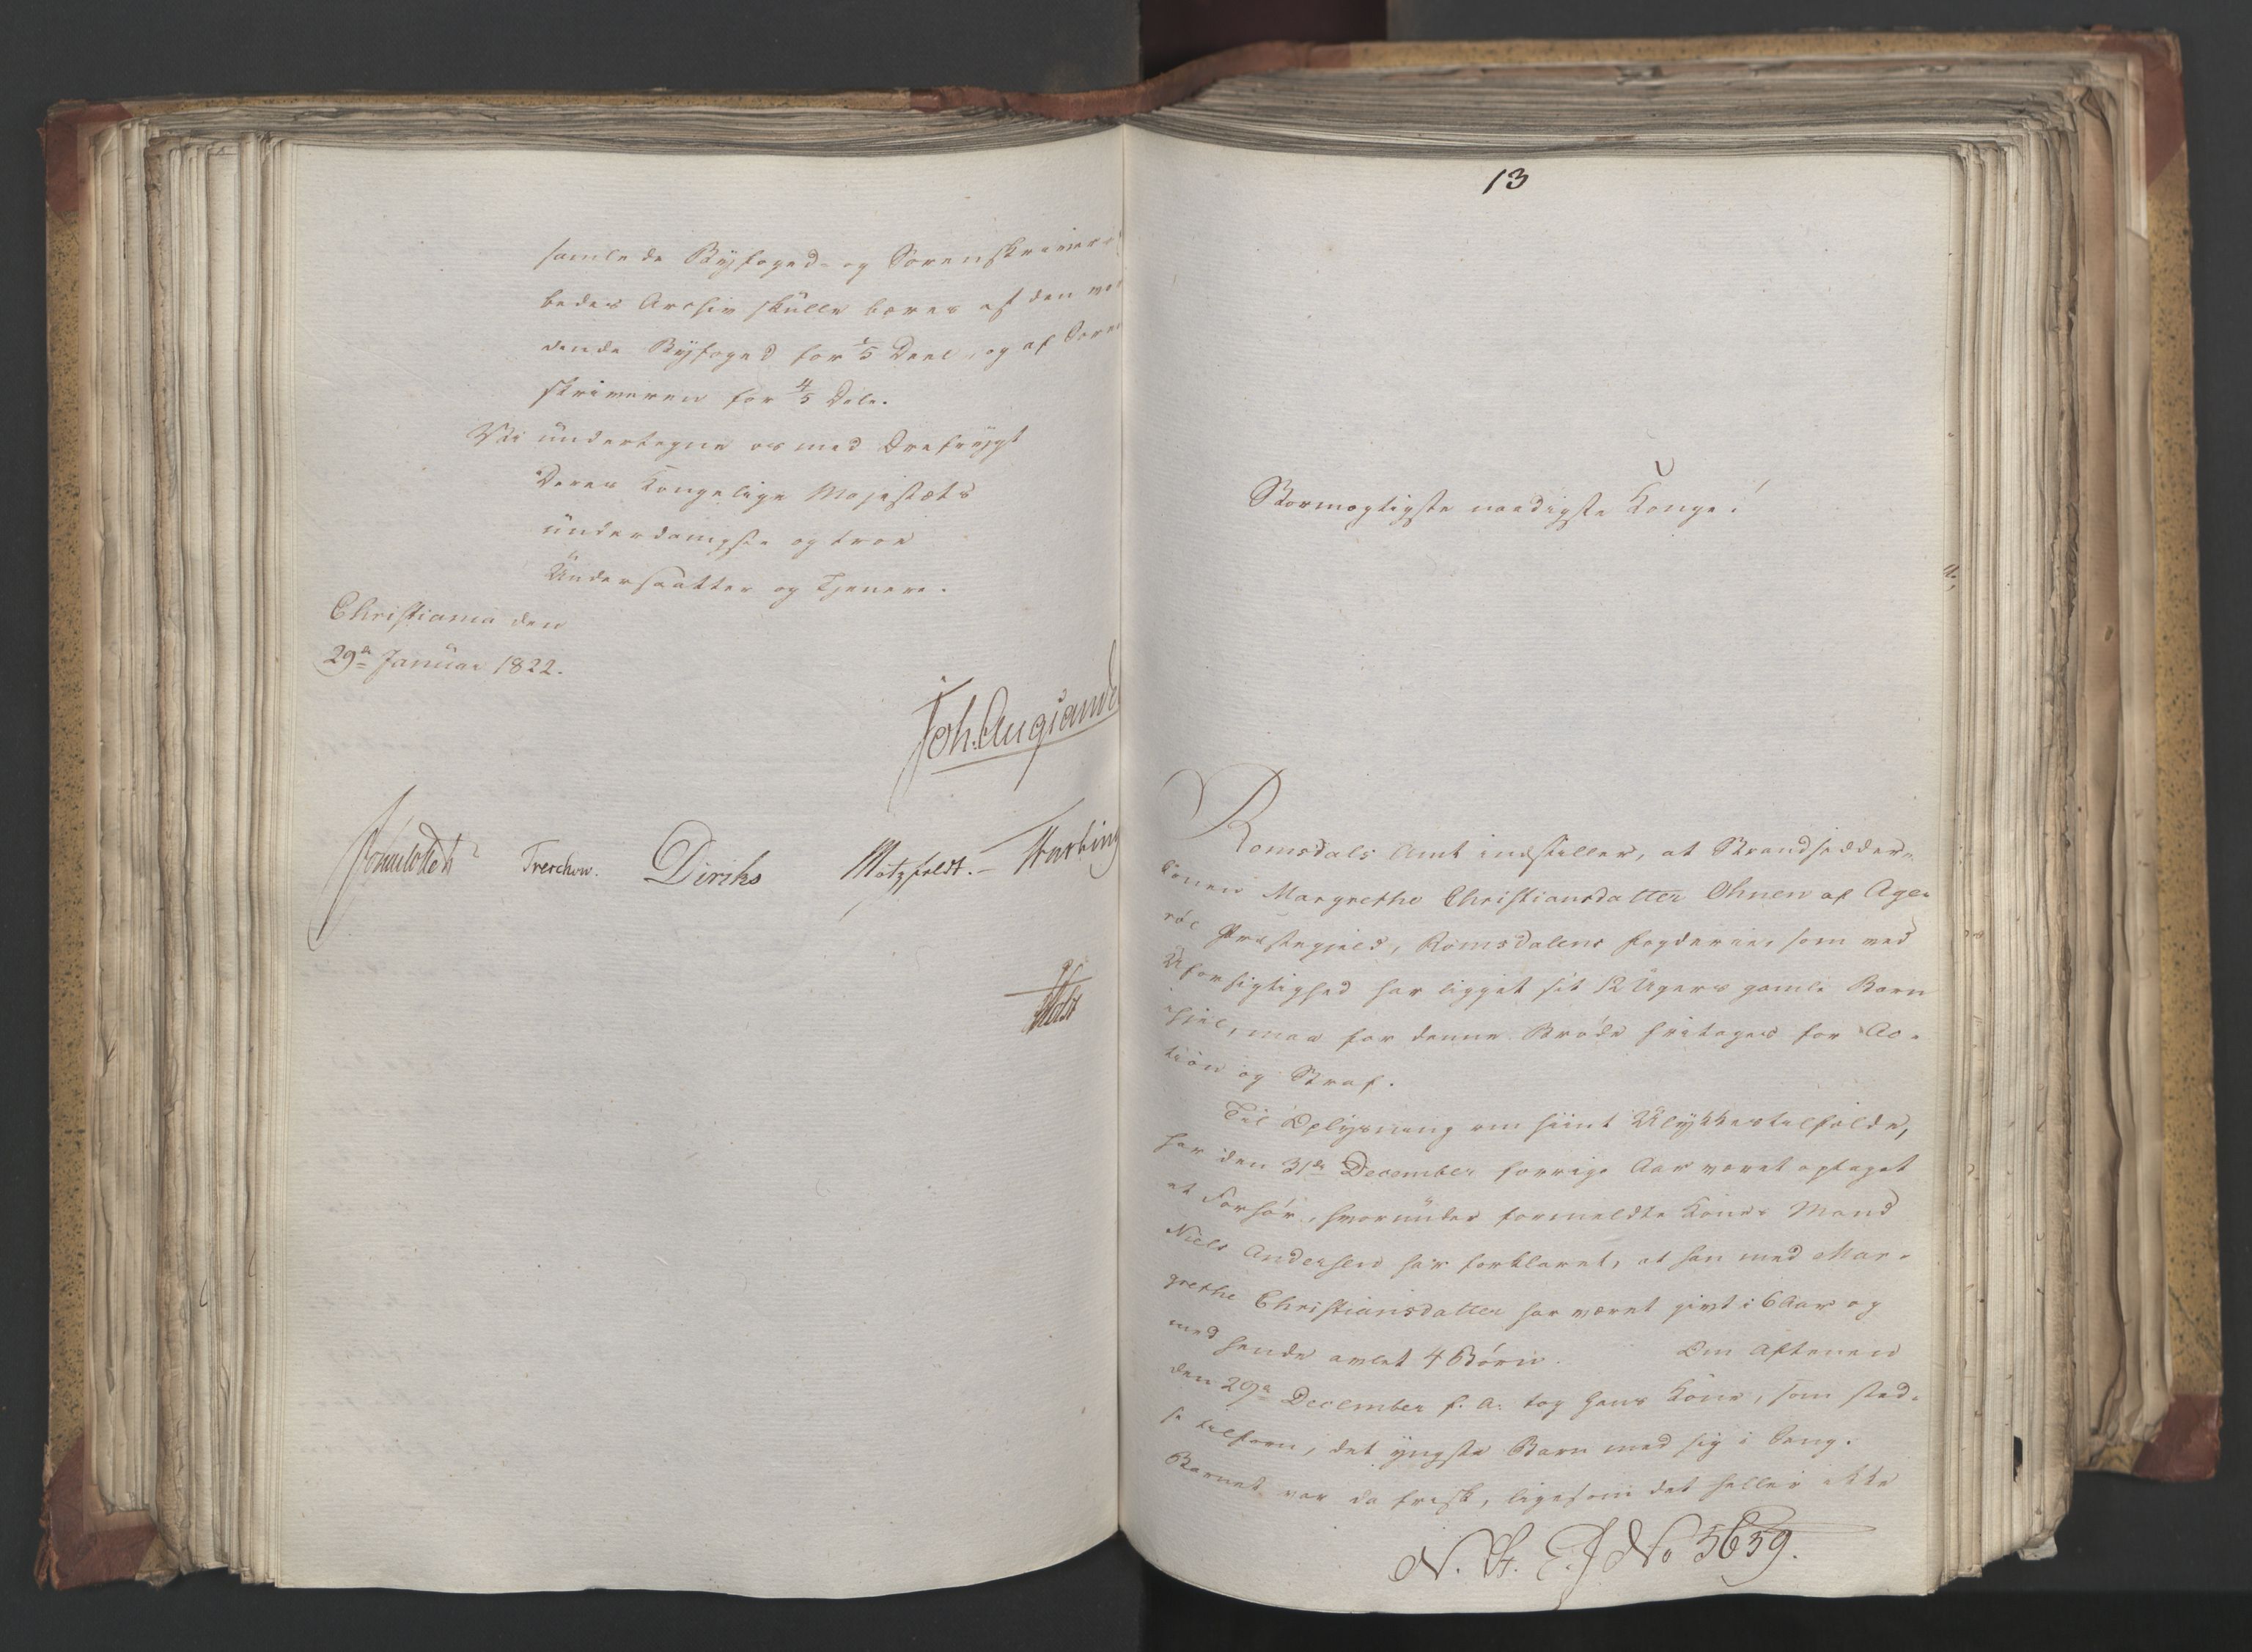 samlede Byfoged- og Sorenskriver
bedes Archiv skulle bæres af den
dende Byfoged for 1/5 Deel, og af Soren
skriveren for 4/5 Dele.
Vi undertegne os med Ærefrygt
Deres Kongelige Majestæts
underdanigste og troe
Undersaatter og Tjenere.
Christiania den
29de Januar 1822.
Joh. Aug Sandel
Sommerfeldt Treschow. Diriks Motzfeldt.
Holst
13
Stormægtigste naadigste Konge!
Romsdals Amt indstiller, at Strandsidder-
konen Margrethe Christiansdatter Ohnen af Age-
röe Præstegjeld, Romsdalens Fogderie, som ved
Uforsigtighed har ligget sit 12 Ugers gamle Barn
ihjel, maa for denne Bröde fritages for Ac-
tion og Straf.
Til Oplysning om hiint Ulykkestilfælde,
har den 31te December forrige Aar været optaget
et Forhör, hvorunder formeldte Kones Mand
Niels Andersen har forklaret, at han med Mar-
grethe Christiansdatter har været givt i 6 Aar og
med hende avlet 4 Börn. Om Aftenen
den 29de December f. A. tog hans Kone, som sted-
se tilforn, det yngste Barn med sig i Seng.
Barnet var da frisk, ligesom det heller ikke
N. St. E. J No 5659.